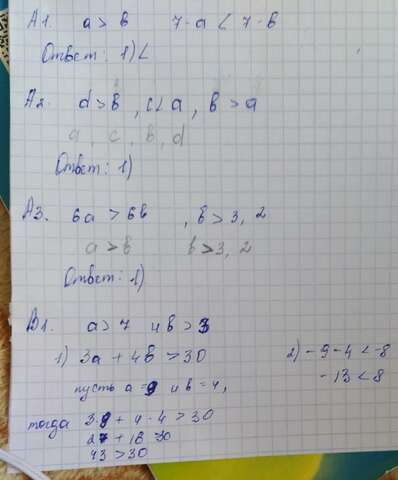 А1. a > b 7-a < 7-b
Ответ: 1) <
А2. d > b , c < a , b > a
a , c , b , d
Ответ: 1)
А3. 6a > 6b , b > 3, 2
a > b b > 3, 2
Ответ: 1)
В1. a > 7 и b > 3
1) 3a + 4b > 30 2) - 9 - 4 < -8
пусть a = 9 и b = 4, - 13 < 8
тогда 3·9 + 4·4 > 30
27 + 16 > 30
43 > 30